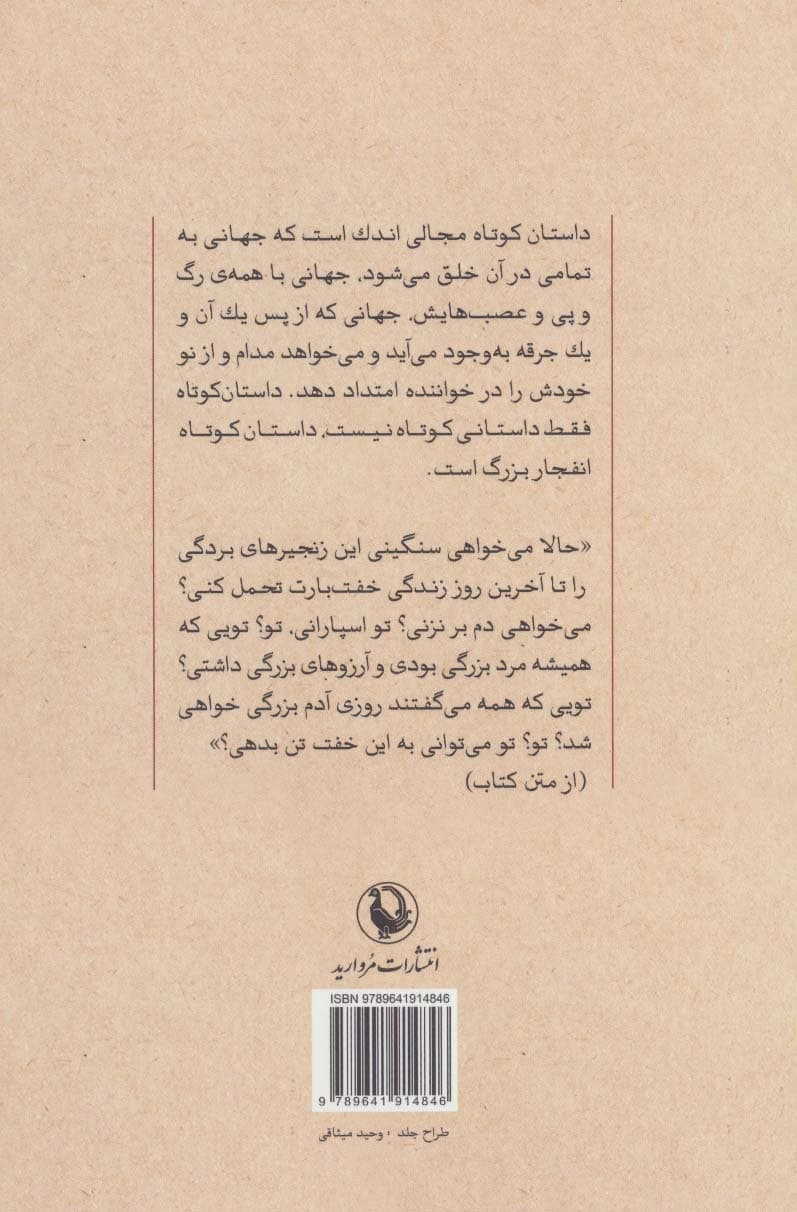 داستان کوتاه مجالی اندك است که جهانی به
تمامی در آن خلق می‌شود، جهانی با همه‌ی رگ
و پی و عصب‌هایش، جهانی که از پس یك آن و
یك جرقه به‌وجود می‌آید و می‌خواهد مدام و از نو
خودش را در خواننده امتداد دهد. داستان‌کوتاه
فقط داستانی کوتاه نیست، داستان کوتاه
انفجار بزرگ است.
«حالا می‌خواهی سنگینی این زنجیرهای بردگی
را تا آخرین روز زندگی خفت‌بارت تحمل کنی؟
می‌خواهی دم بر نزنی؟ تو اسپارانی، تو؟ تویی که
همیشه مرد بزرگی بودی و آرزوهای بزرگی داشتی؟
تویی که همه می‌گفتند روزی آدم بزرگی خواهی
شد؟ تو؟ تو می‌توانی به این خفت تن بدهی؟»
(از متن کتاب)
انتشارات مُروارید
ISBN 9789641914846
9 789641 914846
طراح جلد : وحید میثاقی